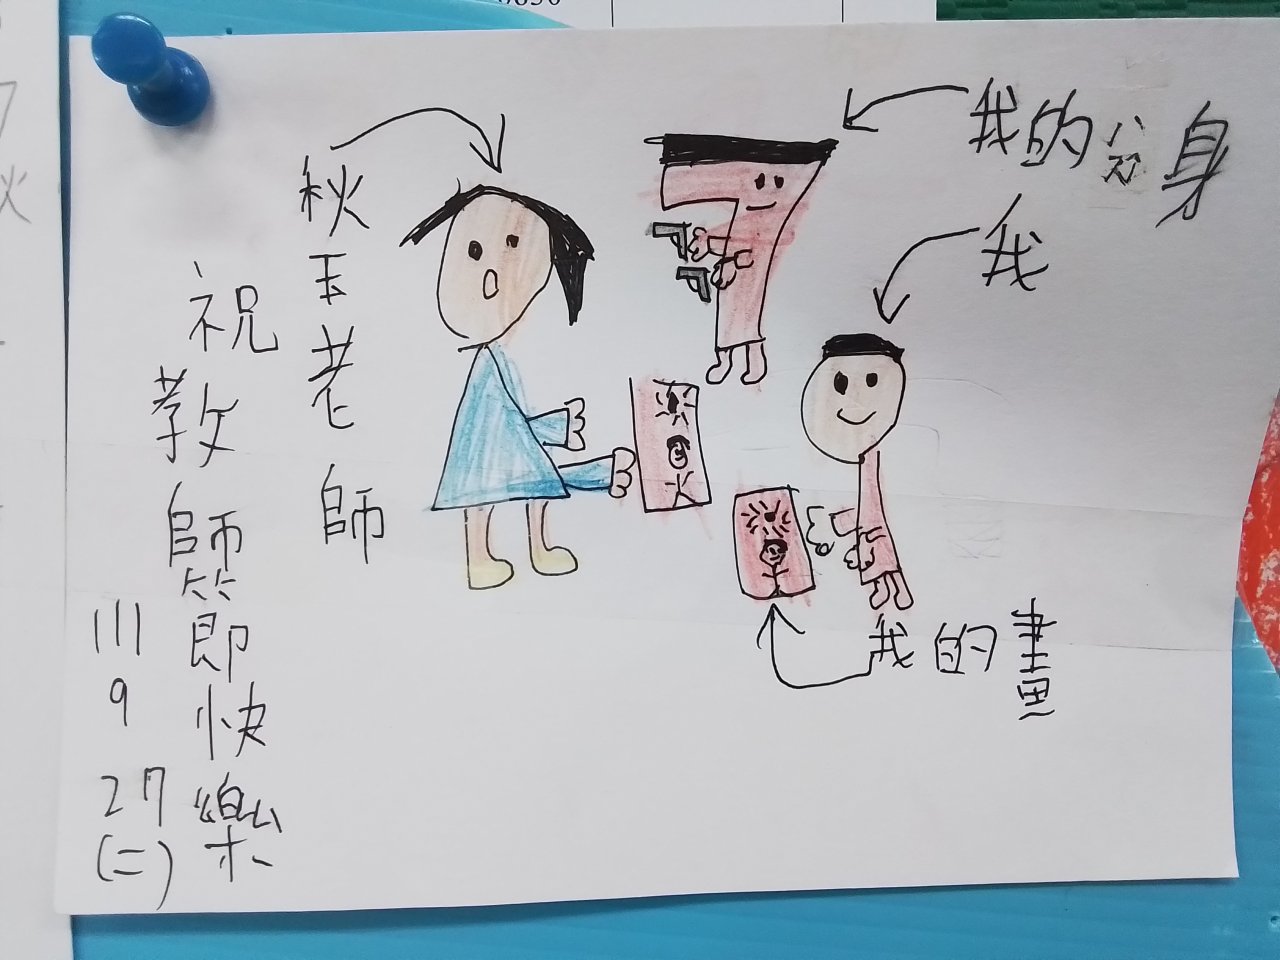 秋玉老師
祝教師節快樂
111
9
27
(二)
我的分身
我
我的畫